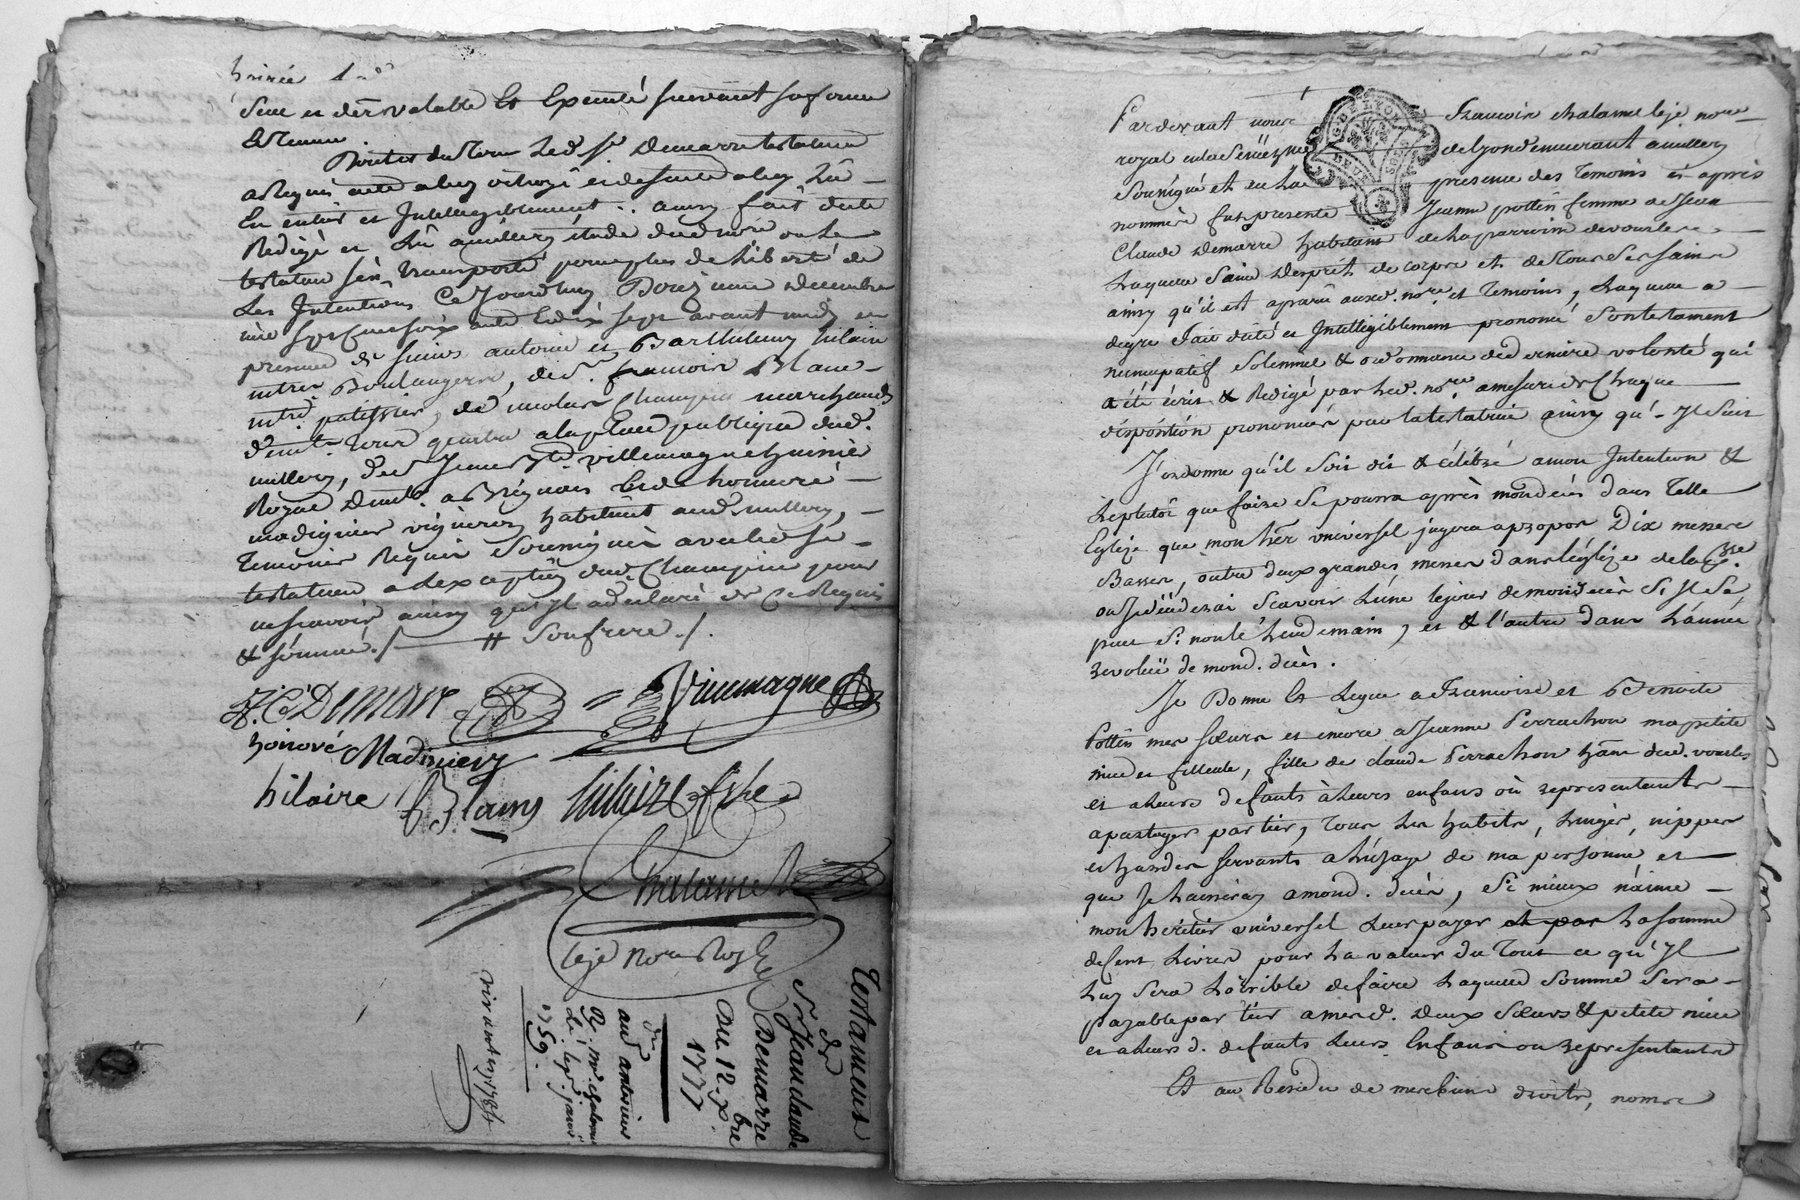 seul et der. valable et Executé suivant sa forme
Et teneur.
Du tout led. Sr Demarre testateur
a Requis acte a luy octroyé et de suitte a luy Lû
En entier et Intelligiblement. ainsy fait dicté
Redigé et Lû a millery étude dud. nore ou Le
testateur s'en transporté pour plus de liberté de
Ses Intentions Ce Jourdhuy Douzieme Decembre
mil sept cens soix. ante Et dix sept avant midy en
presence de Srs antoine et Barthelemy hilaire
mtres Boulangers, de Sr. francois Blanc
mtre. patissier, de nicolas Champin marchand
demt. tous quatre a la place publique dud.
millery, de villemagne huissier
Royal demt. a Brignais et de honnoré
madignier vigneron habitant aud. millery,
temoins Requis Soussignés avec le Se.
testateur a L'exception dud. Champin pour
ne scavoir ainsy qu'il a declaré de ce Requis
& sommé ./. # Souffrere ./.
J. C. DEMARE Villemagne
honoré Madinier
hilaire Blanc hilaire fils
Chalamel
léjé Nore Royal
Testament
de
Sr Jean Claude
Demarre
Du 12. Xbre
1777
1759.
G. DE LYON
DEUX SOLS
Pardevant nous Francois chalamel léjé nore
royal en la Senéchaussée de Lyon demeurant a millery
Soussigné et en la presence des Temoins cy après
nommés fut presente Jeanne pottin femme de Jean
Claude Demarre habitant de la parroisse de vourles
Laquelle Saine d'esprit de corps et de tous Ses Sains
ainsy qu'il est aparû aux d. nore. et Temoins, Laquelle a
de gré fait dicté et Intelligiblement prononcé Son testament
nuncupatif Solemnel & ordonnance de derniere volonté qui
a été écrit & Redigé par led. nore a mesure de Chaque
disposition prononcée par la testatrice ainsy qu'il Suit
J'ordonne qu'il Soit dit & célébré a mon Intention &
Le plutôt que faire Se pourra après mon decès dans Telle
Eglize que mon her. universel jugera apropos Dix messes
Basses, outre deux grandes messes dans l'églize de la psse.
ou Je decederai Scavoir L'une le jour de mon decès Si Il Se
peut Si non le Lendemain, et & l'autre dans L'année
revoluë de mond. decès.
Je Donne Et Legue a Francoise et Benoite
Pottin mes Sœurs et encore a Jeanne Perrachon ma petite
niece et filleule, fille de claude Perrachon han. dud. vourles
et a Leurs defauts à Leurs enfans où representants
a partager par tier, tous Les habits, Linges, nippes
et hardes servants a L'uzage de ma personne et
que Je Laisseray a mond. decès, Si mieux n'aime
mon héritier universel Leur payer La Somme
de Cent Livres pour La valeur du Tout ce qu'Il
Luy Sera Loisible de faire Laquelle Somme Sera
payable par tier a mesd. Deux Sœurs & petite niece
et a Leurs d. defauts Leurs Enfans ou representants
Et au Residu de mes biens droits, noms